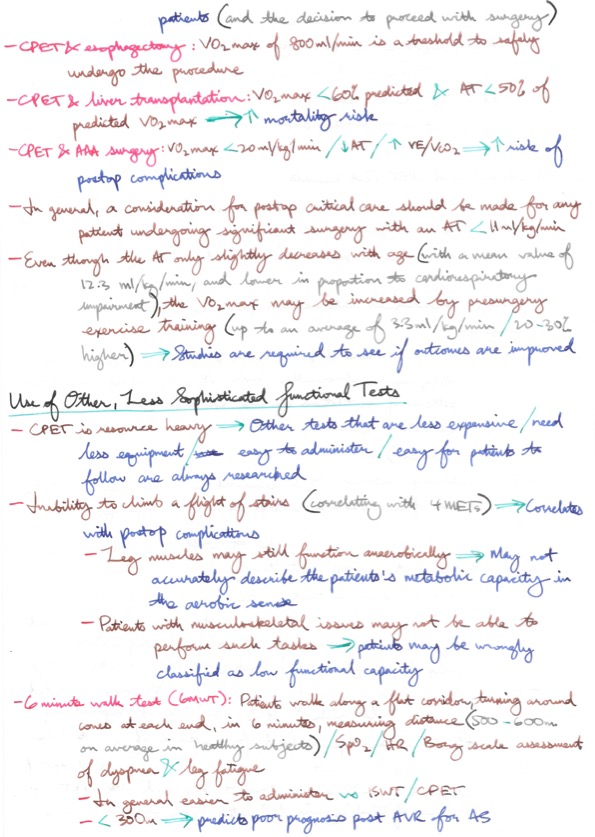 patients (and the decision to proceed with surgery)
- CPET & esophagectomy : VO2 max of 800ml/min is a treshold to safely
undergo the procedure
- CPET & liver transplantation : VO2 max <60% predicted & AT <50% of
predicted VO2 max → ↑ mortality risk
- CPET & AAA surgery : VO2 max <20ml/kg/min / ↓AT / ↑ VE/VCO2 ⇒ ↑ risk of
postop complications
- In general, a consideration for postop critical care should be made for any
patient undergoing significant surgery with an AT < 11ml/kg/min
- Even though the AT only slightly decreases with age (with a mean value of
12.3 ml/kg/min, and lower in propotion to cardiorespiratory
impairment), the VO2 max may be increased by presurgery
exercise training (up to an average of 3.3ml/kg/min / 20-30%
higher) ⇒ Studies are required to see if outcomes are improved
Use of Other, Less Sophisticated Functional Tests
- CPET is resource heavy ⇒ Other tests that are less expensive / need
less equipment / easy to administer / easy for patients to
follow are always researched
- Inability to climb a flight of stairs (correlating with 4 METs) ⇒ Correlates
with postop complications
- Leg muscles may still function anaerobically ⇒ May not
accurately describe the patients's metabolic capacity in
the aerobic sense
- Patients with musculoskeletal issues may not be able to
perform such tasks → patients may be wrongly
classified as low functional capacity
- 6 minute walk test (6MWT) : Patients walk along a flat corridor, turning around
cones at each end, in 6 minutes, measuring distance (500-600m
on average in healthy subjects) / SpO2 / HR / Borg scale assessment
of dyspnea & leg fatigue
- In general easier to administer vs ISWT / CPET
- < 300m ⇒ predicts poor prognosis post AVR for AS